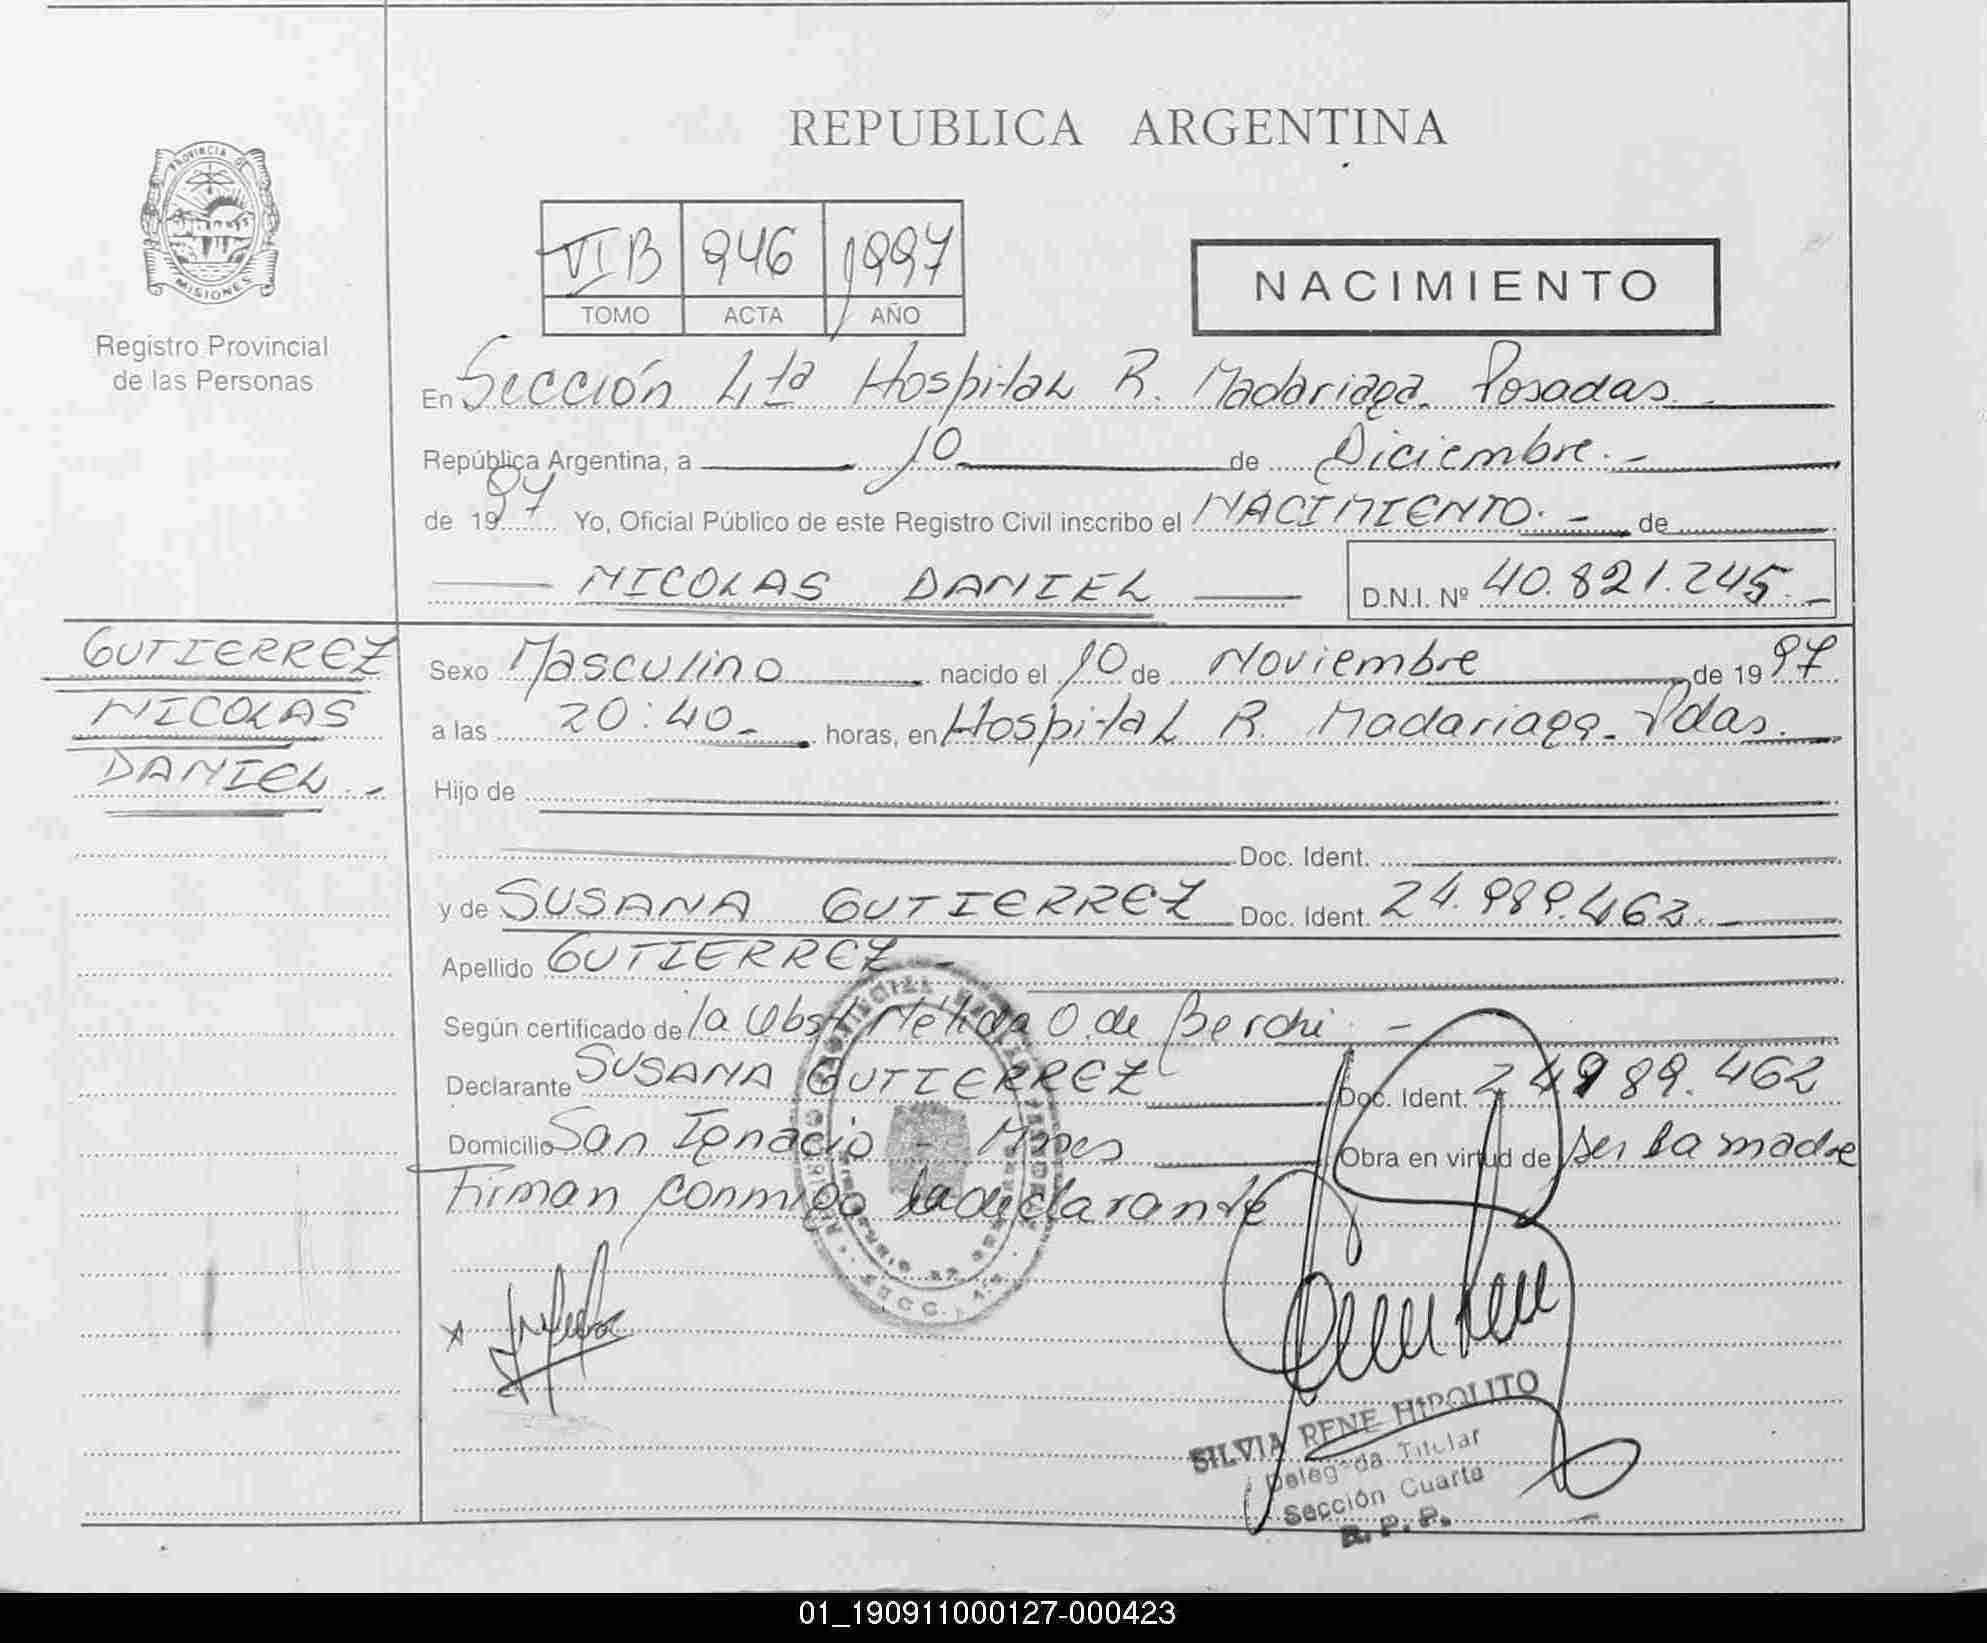 REPUBLICA ARGENTINA
PROVINCIA DE
MISIONES
Registro Provincial
de las Personas
VI B 946 1997
TOMO ACTA AÑO
NACIMIENTO
En Sección 4ta Hospital R. Madariaga. Posadas.
República Argentina, a 10 de Diciembre.-
de 1997 Yo, Oficial Público de este Registro Civil inscribo el NACIMIENTO.- de
NICOLAS DANIEL D.N.I. Nº 40.821.245.-
GUTIERREZ
NICOLAS
DANIEL.-
Sexo Masculino nacido el 10 de Noviembre de 1997
a las 20:40.- horas, en Hospital R. Madariaga. Pdas.
Hijo de
Doc. Ident.
y de SUSANA GUTIERREZ Doc. Ident. 24.989.462.-
Apellido GUTIERREZ -
Según certificado de la Obst. Nélida O. de Berchi.-
Declarante SUSANA GUTIERREZ Doc. Ident. 24989.462
Domicilio San Ignacio - Mnes Obra en virtud de ser la madre
Firman conmigo la declarante
SILVIA RENE HIPOLITO
Delegada Titular
Sección Cuarta
R. P. P.
01_190911000127-000423